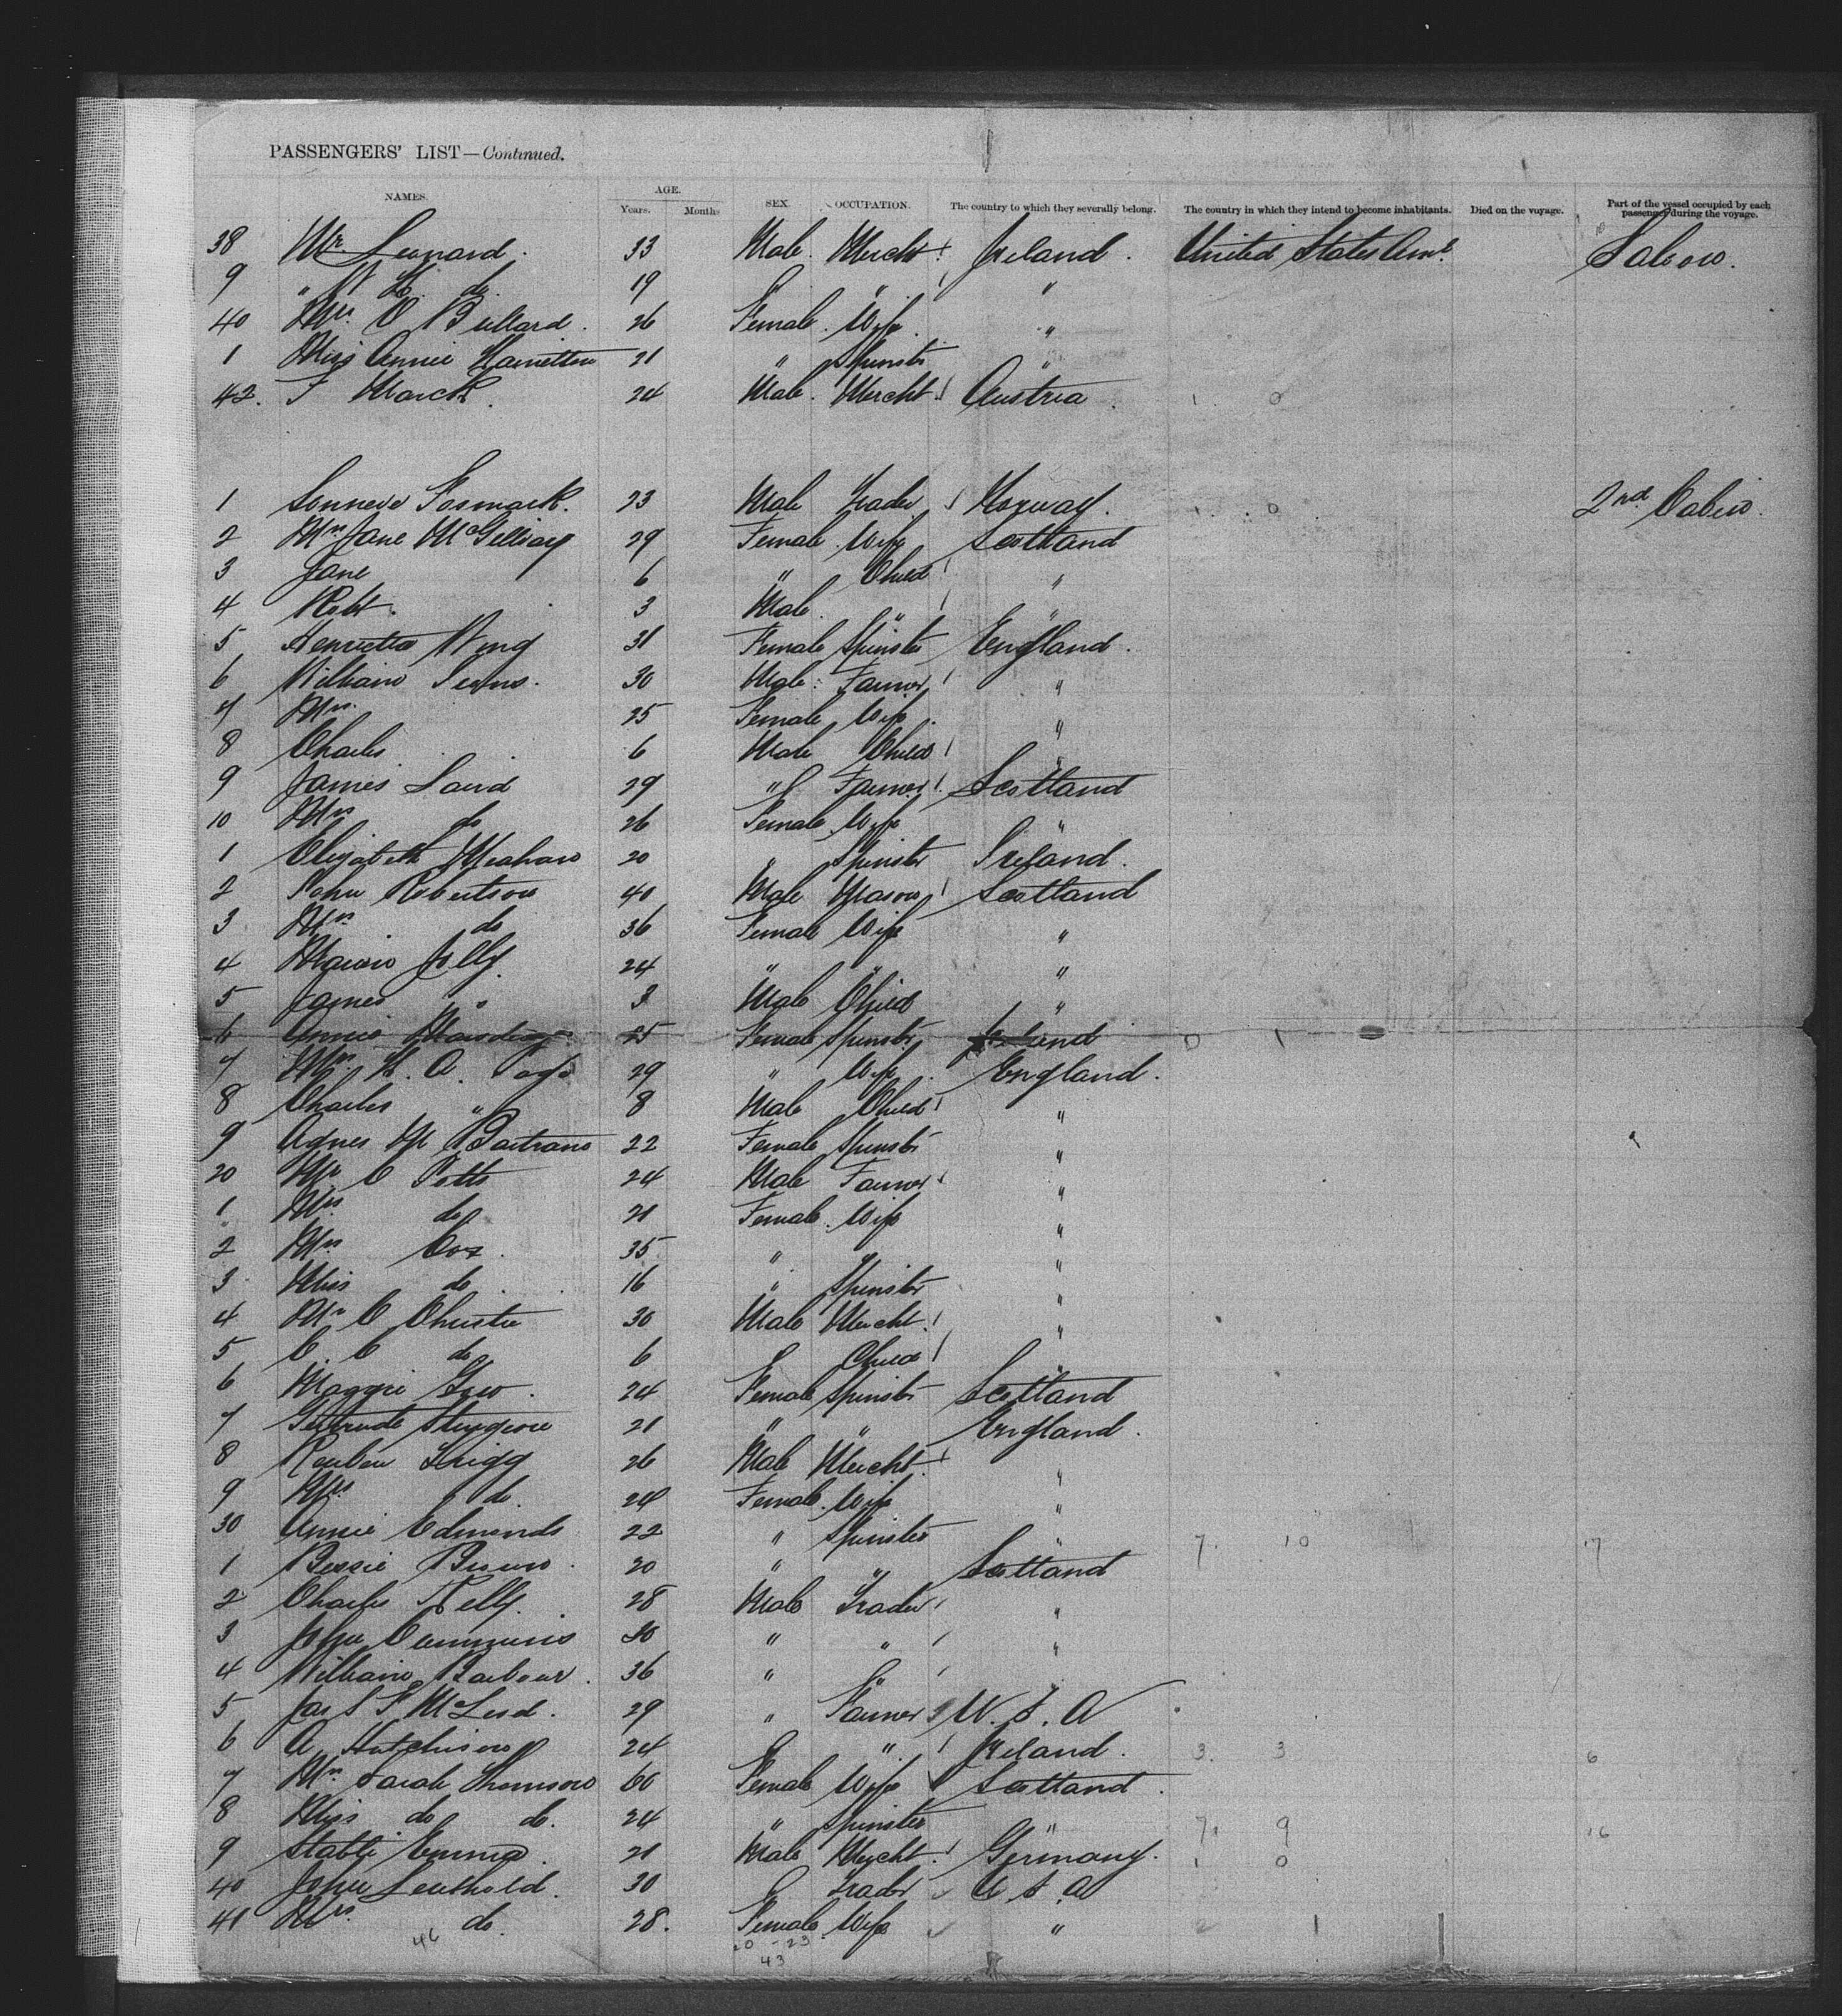 PASSENGERS' LIST—Continued.
NAMES. AGE. Years. Months SEX. OCCUPATION. The country to which they severally belong. The country in which they intend to become inhabitants. Died on the voyage. Part of the vessel occupied by each passenger during the voyage.
38 Mr Leonard. 33 Male. Mercht Ireland. United States Ama. Saloon.
9 " do 19 " " "
40 Mrs. O Bullard. 26 Female. Wife. "
1 Miss Annie Hamilton 21 " Spinster "
42. F March. 24 Male. Mercht. Austria. 1. 0
1 Fosmark. 23 Male Trader Norway. 1. 0 2nd Cabin.
2 Mrs Jane McGillivray 29 Female. Wife Scotland
3 Jane 6 " Child "
4 Robt. 3 Male. " "
5 Henrietta Wing 31 Female Spinster England.
6 William 30 Male. Farmer "
7 Mrs. 25 Female Wife. "
8 Charles 6 Male Child "
9 James Laird 29 " Farmer. Scotland
10 Mrs do 26 Female. Wife "
1 Elizabeth 20 " Spinster Ireland.
2 John Robertson 40 Male Mason Scotland
3 Mrs. do 36 Female Wife "
4 Jolly 24 " " "
5 James " 3 Male Child "
6 Annie 25 Female Spinster 0 1
7 Mrs. H. A. Page 29 " Wife. England.
8 Charles " 8 Male Child "
9 Agnes M Bartram 22 Female Spinster "
20 Mr C Potts 24 Male Farmer "
1 Mrs. do 21 Female. Wife "
2 Mrs Cox. 35 " " "
3 Miss do 16 " Spinster "
4 Mr C Christie 30 Male Mercht. "
5 C. C do 6 Child "
6 Maggie Gow. 24 Female Spinster Scotland
7 Gertrude 21 " " England.
8 Reuben Trigg 26 Male Mercht. "
9 Mrs do. 24 Female. Wife "
30 Annie Edmonds 22 " Spinster " 7. 10 17
1 Bessie Brown. 20 " " Scotland
2 Charles Kelly. 28 Male Trader "
3 John Cummins 30 " " "
4 William Barbour. 36 " " "
5 Jas S F McLeod. 29 " Farmer U. S. A
6 A Hutchison 24 " Ireland. 3. 3 6
7 Mrs. Sarah Thomson 60 Female Wife Scotland.
8 Miss do do. 24 " Spinster " 7. 9 16
9 Emma. 21 Male Mercht. Germany. 1 0
40 John Leuthold. 30 Trader U S. A
41 Mrs. do. 28. Female. Wife "
46 20 - 23
43